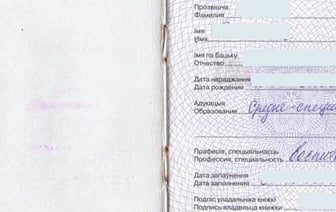 Прозвішча
Фамилия
Імя
Имя
Імя па бацьку
Отчество
Дата нараджэння
Дата рождения
Адукацыя
Образование Средне-специ
Прафесія, спецыяльнасць
Профессия, специальность воспит
Дата запаўнення
Дата заполнения
Подпіс уладальніка кніжкі
Подпись владельца книжки